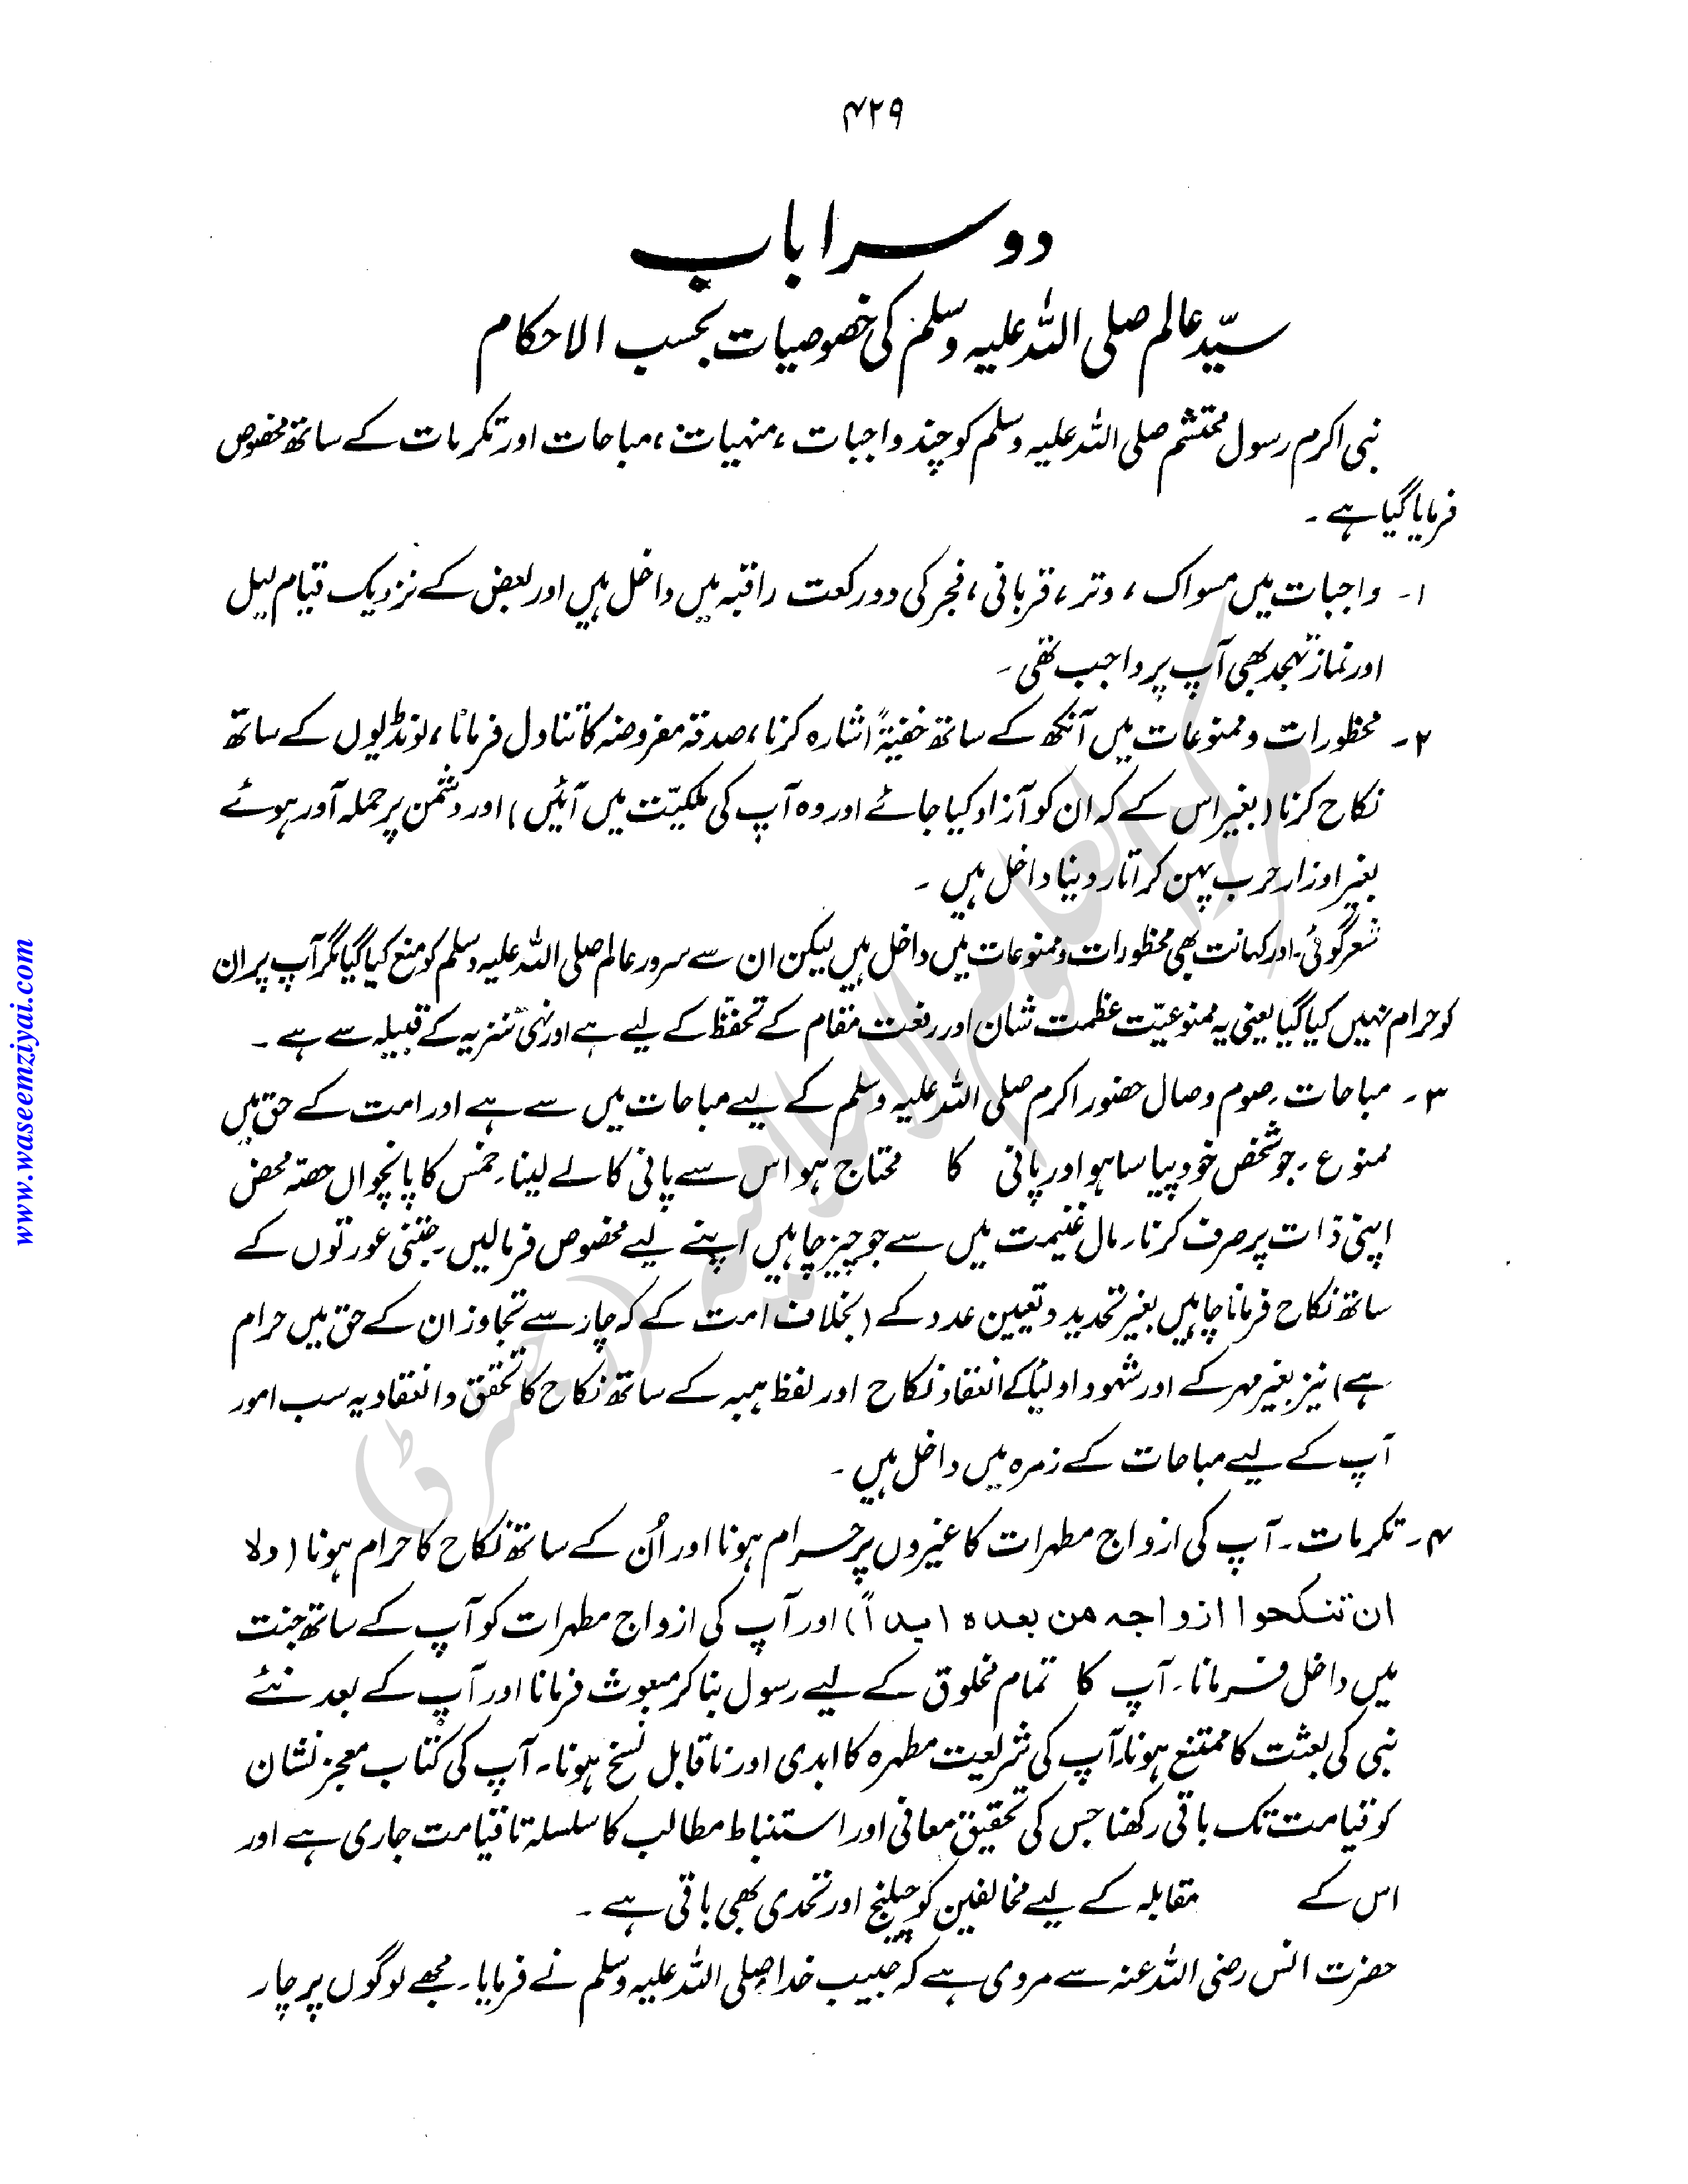 ۴۲۹
دوسرا باب
سیّد عالم صلی اللہ علیہ وسلم کی خصوصیات بحسب الاحکام
نبی اکرم رسول محتشم صلی اللہ علیہ وسلم کو چند واجبات ، منہیات ، مباحات اور تکرمات کے ساتھ مخصوص
فرمایا گیا ہے ۔
۱۔ واجبات میں مسواک ، وتر ، قربانی ، فجر کی دو رکعت راتبہ میں داخل ہیں اور بعض کے نزدیک قیام لیل
اور نماز تہجد بھی آپ پر واجب تھی ۔
۲۔ محظورات و ممنوعات میں آنکھ کے ساتھ خفیۃً اشارہ کرنا ، صدقہ مفروضہ کا تناول فرمانا ، لونڈیوں کے ساتھ
نکاح کرنا (بغیر اس کے کہ ان کو آزاد کیا جائے اور وہ آپ کی ملکیّت میں آئیں) اور دشمن پر حملہ آور ہوئے
بغیر اوزار حرب پہن کر اتار دینا داخل ہیں ۔
شعر گوئی۔ اور کہانت بھی محظورات و ممنوعات میں داخل ہیں لیکن ان سے سرور عالم صلی اللہ علیہ وسلم کو منع کیا گیا مگر آپ پر ان
کو حرام نہیں کیا گیا یعنی یہ ممنوعیّت عظمت شان اور رفعت مقام کے تحفظ کے لیے ہے اور نہی تنزیہ کے قبیلہ سے ہے ۔
۳۔ مباحات ۔ صوم وصال حضور اکرم صلی اللہ علیہ وسلم کے لیے مباحات میں سے ہے اور امت کے حق میں
ممنوع ۔ جو شخص خود پیاسا ہو اور پانی کا محتاج ہو اس سے پانی کا لے لینا ۔ خمس کا پانچواں حصّہ محض
اپنی ذات پر صرف کرنا ۔ مال غنیمت میں سے جو چیز چاہیں اپنے لیے مخصوص فرما لیں ۔ جتنی عورتوں کے
ساتھ نکاح فرمانا چاہیں بغیر تحدید و تعیین عدد کے (بخلاف امت کے کہ چار سے تجاوز ان کے حق میں حرام
ہے) نیز بغیر مہر کے اور شہود و اولیاء کے انعقاد نکاح اور لفظ ہبہ کے ساتھ نکاح کا تحقق و انعقاد یہ سب امور
آپ کے لیے مباحات کے زمرہ میں داخل ہیں ۔
۴۔ تکرمات ۔ آپ کی ازواج مطہرات کا غیروں پر حرام ہونا اور اُن کے ساتھ نکاح کا حرام ہونا (ولا
ان تنکحوا ازواجہ من بعدہ ابداً) اور آپ کی ازواج مطہرات کو آپ کے ساتھ جنت
میں داخل فرمانا ۔ آپ کا تمام مخلوق کے لیے رسول بنا کر مبعوث فرمانا اور آپ کے بعد نئے
نبی کی بعثت کا ممتنع ہونا۔ آپ کی شریعت مطہرہ کا ابدی اور ناقابل نسخ ہونا۔ آپ کی کتاب معجز نشان
کو قیامت تک باقی رکھنا جس کی تحقیق معانی اور استنباط مطالب کا سلسلہ تا قیامت جاری ہے اور
اس کے مقابلہ کے لیے مخالفین کو چیلنج اور تحدی بھی باقی ہے ۔
حضرت انس رضی اللہ عنہ سے مروی ہے کہ حبیب خدا صلی اللہ علیہ وسلم نے فرمایا ۔ مجھے لوگوں پر چار
www.waseemziyai.com